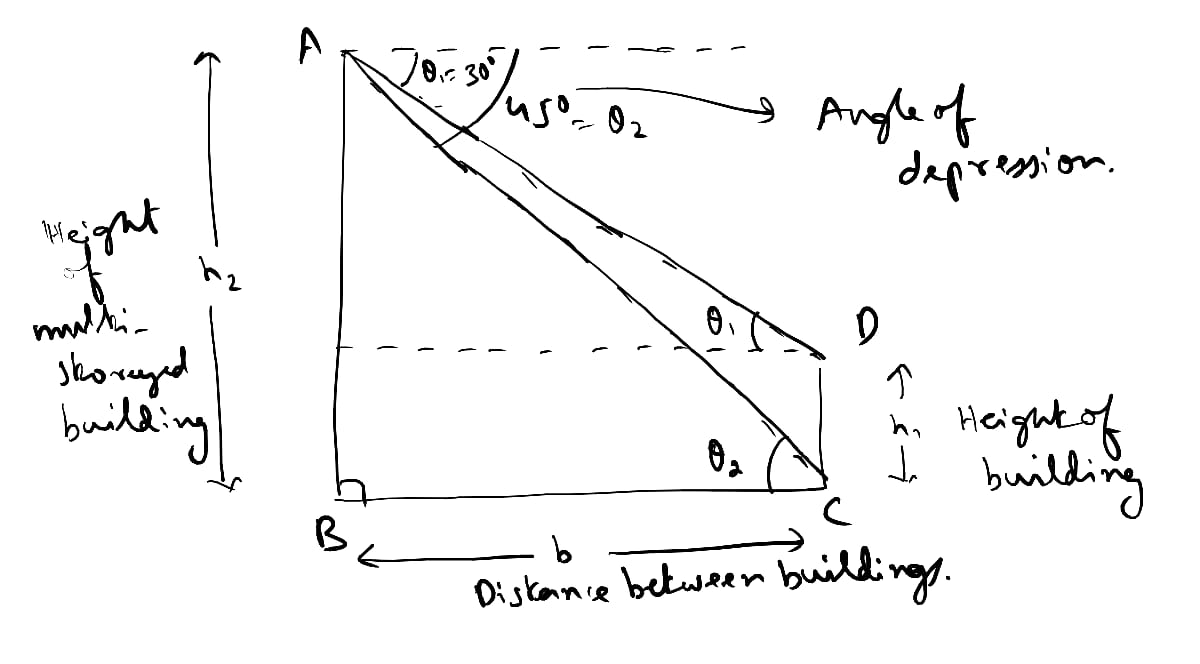 A
θ₁ = 30°
45° = θ₂
Angle of
depression.
Height
of
multi-
storeyed
building
h₂
θ₁
D
h₁
Height of
building
θ₂
B
C
b
Distance between buildings.